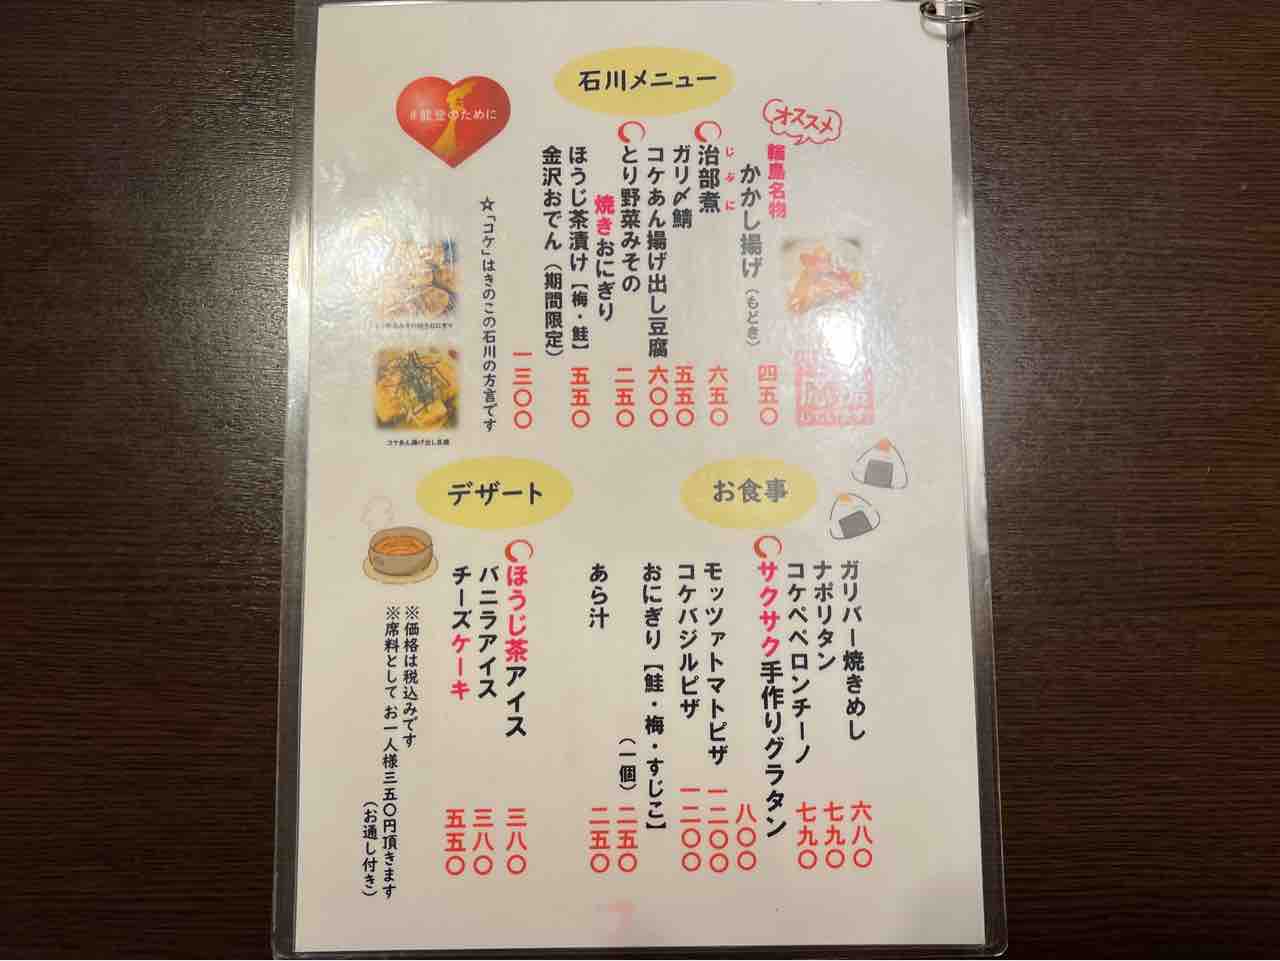 石川メニュー
#能登のために
オススメ
輪島名物
かかし揚げ（もどき） 四五〇
じぶに
治部煮 六五〇
ガリ〆鯖 五五〇
コケあん揚げ出し豆腐 六〇〇
とり野菜みその
焼きおにぎり 二五〇
ほうじ茶漬け【梅・鮭】 五五〇
金沢おでん（期間限定） 一三〇〇
☆「コケ」はきのこの石川の方言です
コケあん揚げ出し豆腐
しています
お食事
ガリバー焼きめし 六八〇
ナポリタン 七九〇
コケペペロンチーノ 七九〇
サクサク手作りグラタン 八〇〇
モッツァトマトピザ 一二〇〇
コケバジルピザ 一二〇〇
おにぎり【鮭・梅・すじこ】
（一個）二五〇
あら汁 二五〇
デザート
ほうじ茶アイス 三八〇
バニラアイス 三八〇
チーズケーキ 五五〇
※価格は税込みです
※席料として お一人様三五〇円頂きます
（お通し付き）